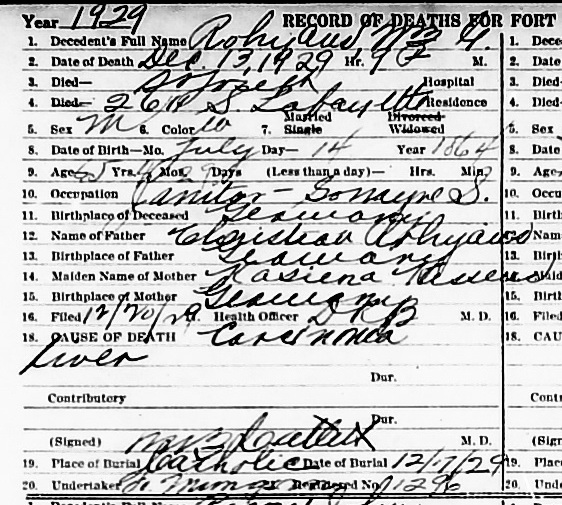 Year 1929 RECORD OF DEATHS FOR FORT
1. Decedent's Full Name Rohyans Wm G.
2. Date of Death Dec 13, 1929 Hr. 9 P M.
3. Died— St Joseph Hospital
4. Died— S. Lafayette Residence
5. Sex M 6. Color W 7. Married Single Divorced Widowed
8. Date of Birth—Mo. July Day— 14 Year 1864
9. Age 65 Yrs. 4 Mos. 29 Days (Less than a day)— Hrs. Min.
10. Occupation Janitor — So Wayne S.
11. Birthplace of Deceased Germany
12. Name of Father Christian Rohyans
13. Birthplace of Father Germany
14. Maiden Name of Mother
15. Birthplace of Mother Germany
16. Filed 12/20/29 Health Officer M. D.
18. CAUSE OF DEATH Carcinoma
Liver
Dur.
Contributory
Dur.
(Signed) M. D.
19. Place of Burial Catholic Date of Burial 12/17/29
20. Undertaker Registered No. 1296
1. Dece
2. Date
3. Died
4. Died
5. Sex
8. Date
9. Age
10. Occu
11. Birth
12. Nam
13. Birth
14. Maid
15. Birth
16. Filed
18. CAU
Cont
(Sign
19. Place
20. Unde